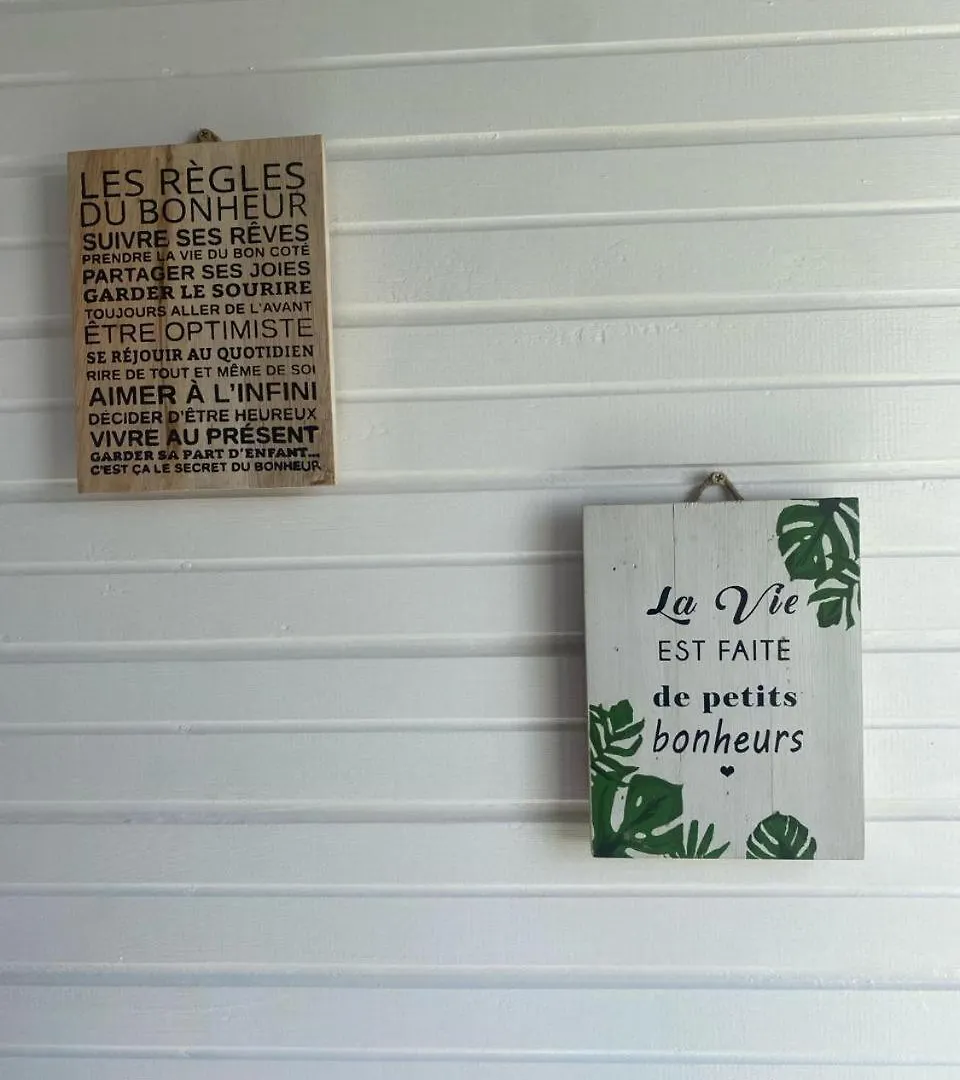 LES RÈGLES
DU BONHEUR
SUIVRE SES RÊVES
PRENDRE LA VIE DU BON COTÉ
PARTAGER SES JOIES
GARDER LE SOURIRE
TOUJOURS ALLER DE L'AVANT
ÊTRE OPTIMISTE
SE RÉJOUIR AU QUOTIDIEN
RIRE DE TOUT ET MÊME DE SOI
AIMER À L'INFINI
DÉCIDER D'ÊTRE HEUREUX
VIVRE AU PRÉSENT
GARDER SA PART D'ENFANT...
C'EST ÇA LE SECRET DU BONHEUR
La Vie
EST FAITE
de petits
bonheurs